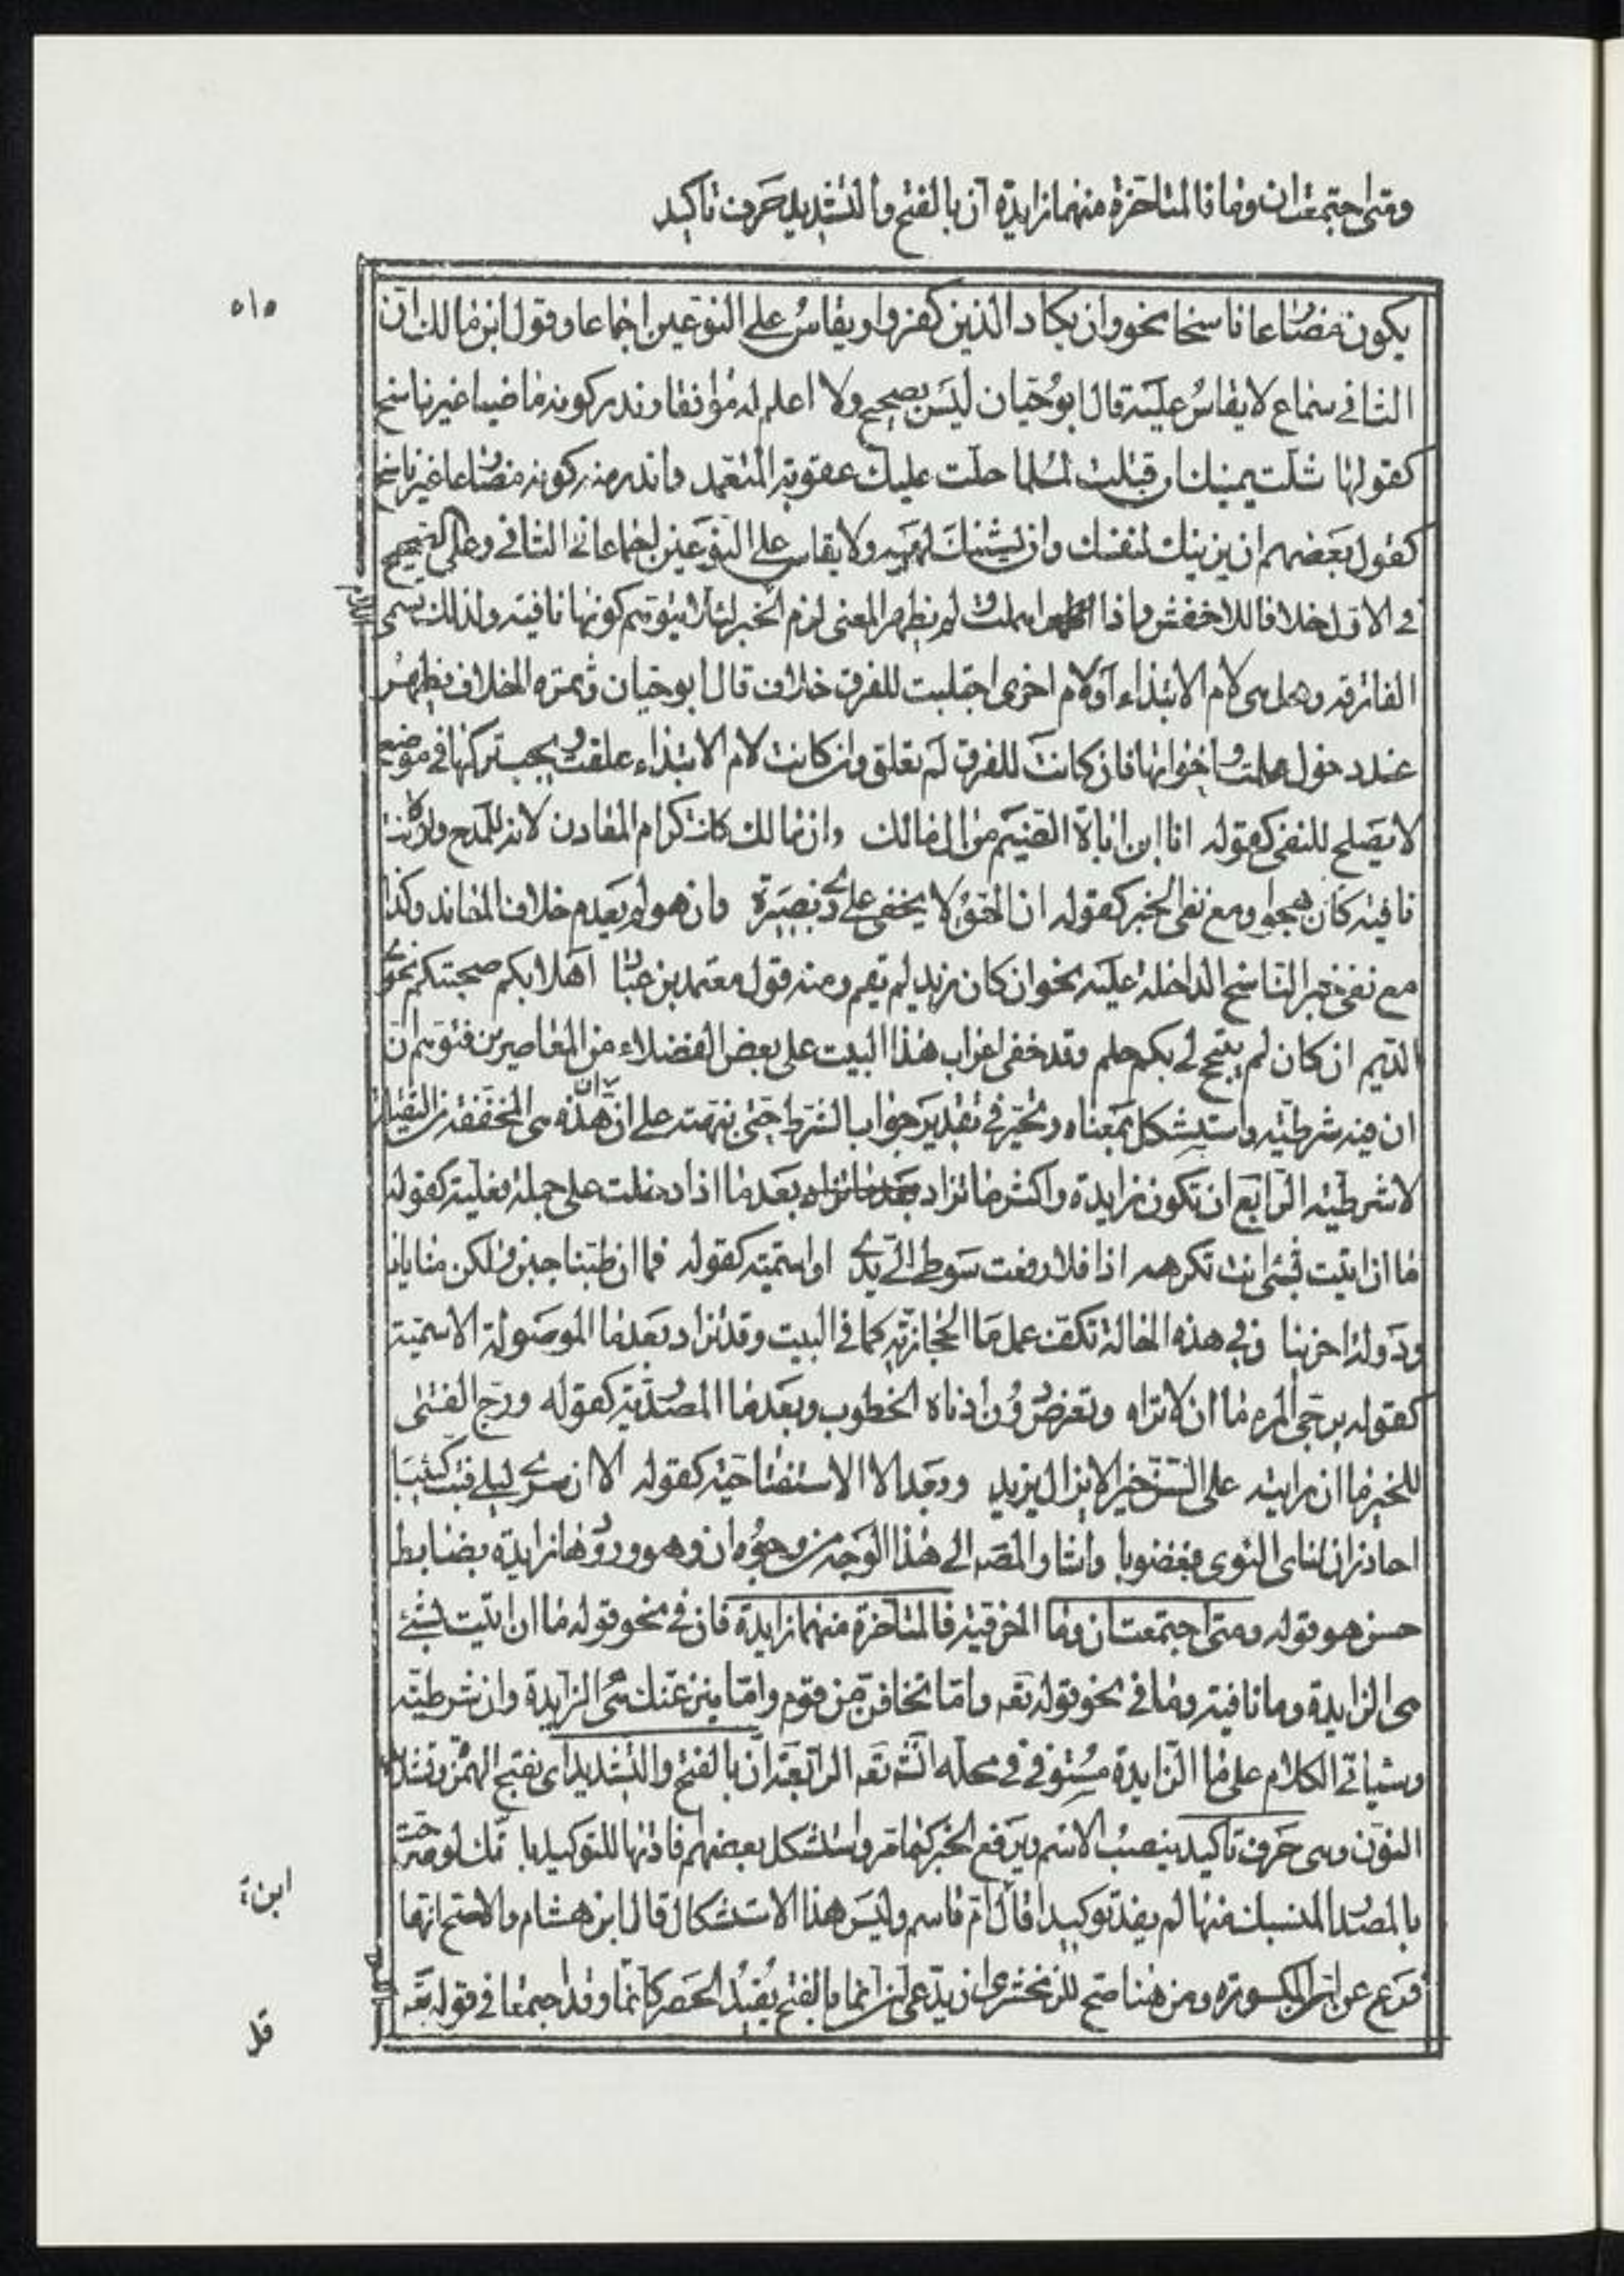 ومتى اجتمعت ان وما فالمتاخرة منهما زايدة ان بالفتح والتشديد حرف تاكيد
٥١٥
يكون مضارعا ناسخا نحو وان يكاد الذين كفروا ويقاس على النوعين اجماعا وقول ابن مالك ان
الثاني سماع لا يقاس عليه قال ابو حيان ليس بصحيح ولا اعلم له موافقا وندر كونه ماضيا غير ناسخ
كقولها شلت يمينك ان قتلت لمسلما حلت عليك عقوبة المتعمد واندر منه كونه مضارعا غير ناسخ
كقول بعضهم ان يزينك لنفسك وان يشينك لهيه ولا يقاس على النوعين اجماعا في الثاني وعلى الصحيح
في الاول خلافا للاخفش واذا اهملت ولم يظهر المعنى لزم الخبر لئلا يتوهم كونها نافية ولذلك تسمى
اللام
الفارقة وهل هى لام الابتداء او لام اخرى اجتلبت للفرق خلاف قال ابو حيان وثمرة الخلاف تظهر
عند دخول علمت واخواتها فان كانت للفرق لم تعلق وان كانت لام الابتداء علقت ويجب تركها في موضع
لا يصلح للنفى كقوله انا ابن اباة الضيم من ال مالك وان مالك كانت كرام المعادن لانه للمدح ولو كانت
نافية كان هجوا ومع نفى الخبر كقوله ان الحق لا يخفى على ذي بصيرة وان هو لم يعدم خلاف المعاند وكذا
مع نفى خبر الناسخ الداخلة عليه نحو ان كان زيد لم يقم ومنه قول معتمد بن عباد اهلا بكم صحبتكم نحوي
الديم ان كان لم يتجح لي بكم حلم وقد خفى اعراب هذا البيت على بعض الفضلاء من المعاصرين فتوهم ان
ان فيه شرطية واستشكل معناه وتحير في تقدير جواب الشرط حتى نبهته على ان ان هذه هى المخففة من الثقيلة
لا شرطية الرابع ان تكون زايدة واكثر ما تزاد بعد ما اذا دخلت على جملة فعلية كقوله
ما ان اتيت بشئ انت تكرهه اذا فلا رفعت سوطي الى يدي او اسمية كقوله فما ان طبنا جبن ولكن منايانا
ودولة اخرينا وفي هذه الحالة تكف عمل ما الحجازية كما في البيت وقد تزاد بعد ما الموصولة الاسمية
كقوله يرجى المرء ما ان لا يراه وتعرض دون ادناه الخطوب وبعد ما المصدرية كقوله ورج الفتى
للخير ما ان رايته على السن خيرا لا يزال يزيد وبعد الا الاستفتاحية كقوله الا ان سرى ليلي فبت كئيبا
احاذر ان تناى النوى بغضوبا واشار المصه الى هذا الوجه من وجوه ان وهو ورودها زايدة بضابط
حسن هو قوله ومتى اجتمعت ان وما الحرفية فالمتاخرة منهما زايدة فان في نحو قوله ما ان اتيت بشئ
هى الزايدة وما نافية وما في نحو قوله تعه واما تخافن من قوم واما ينزغنك هى الزايدة وان شرطية
وسياتي الكلام على ما الزايدة مستوفي في محله انشه تعه الرابعة ان بالفتح والتشديد اى بفتح الهمزة وتشديد
النون وهى حرف تاكيد ينصب الاسم ويرفع الخبر كما مر واستشكل بعضهم فادتها للتوكيد با نك لو صرحت
بالمصدر المنسبك منها لم يفد توكيدا قال ام قاسم وليس هذا الاستشكال قال ابن هشام والاصح انها
فرع عن ان المكسورة ومن هنا صح للزمخشري ان يدعى ان انما بالفتح يفيد الحصر كانما وقد اجتمعا في قوله تعه
قل